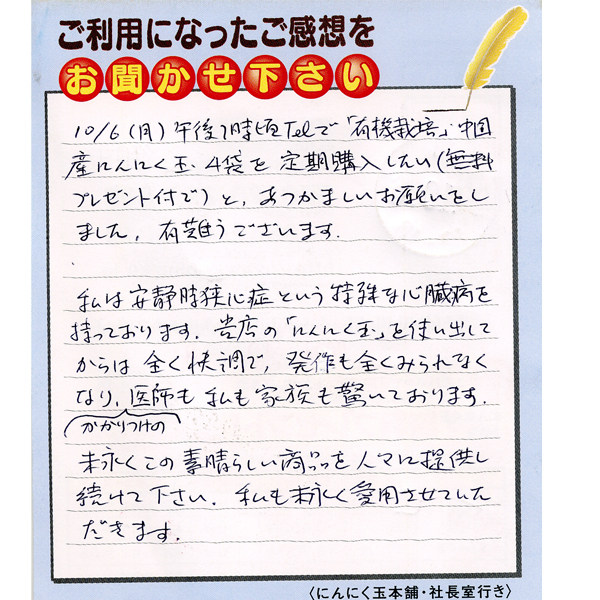 ご利用になったご感想を
お聞かせ下さい
10/6(月)午後1時頃Telで「有機栽培」中国
産にんにく玉、4袋を定期購入したい(無料
プレゼント付で)と、あつかましいお願いをし
ました。有難うございます.
私は安静時狭心症という特殊な心臓病を
持っております。当店の「にんにく玉」を使い出して
からは全く快調で、発作も全くみられなく
なり、医師も私も家族も驚いております.
かかりつけの
末永くこの素晴らしい商品を人々に提供し
続けて下さい.私も末永く愛用させていた
だきます.
〈にんにく玉本舗・社長室行き〉